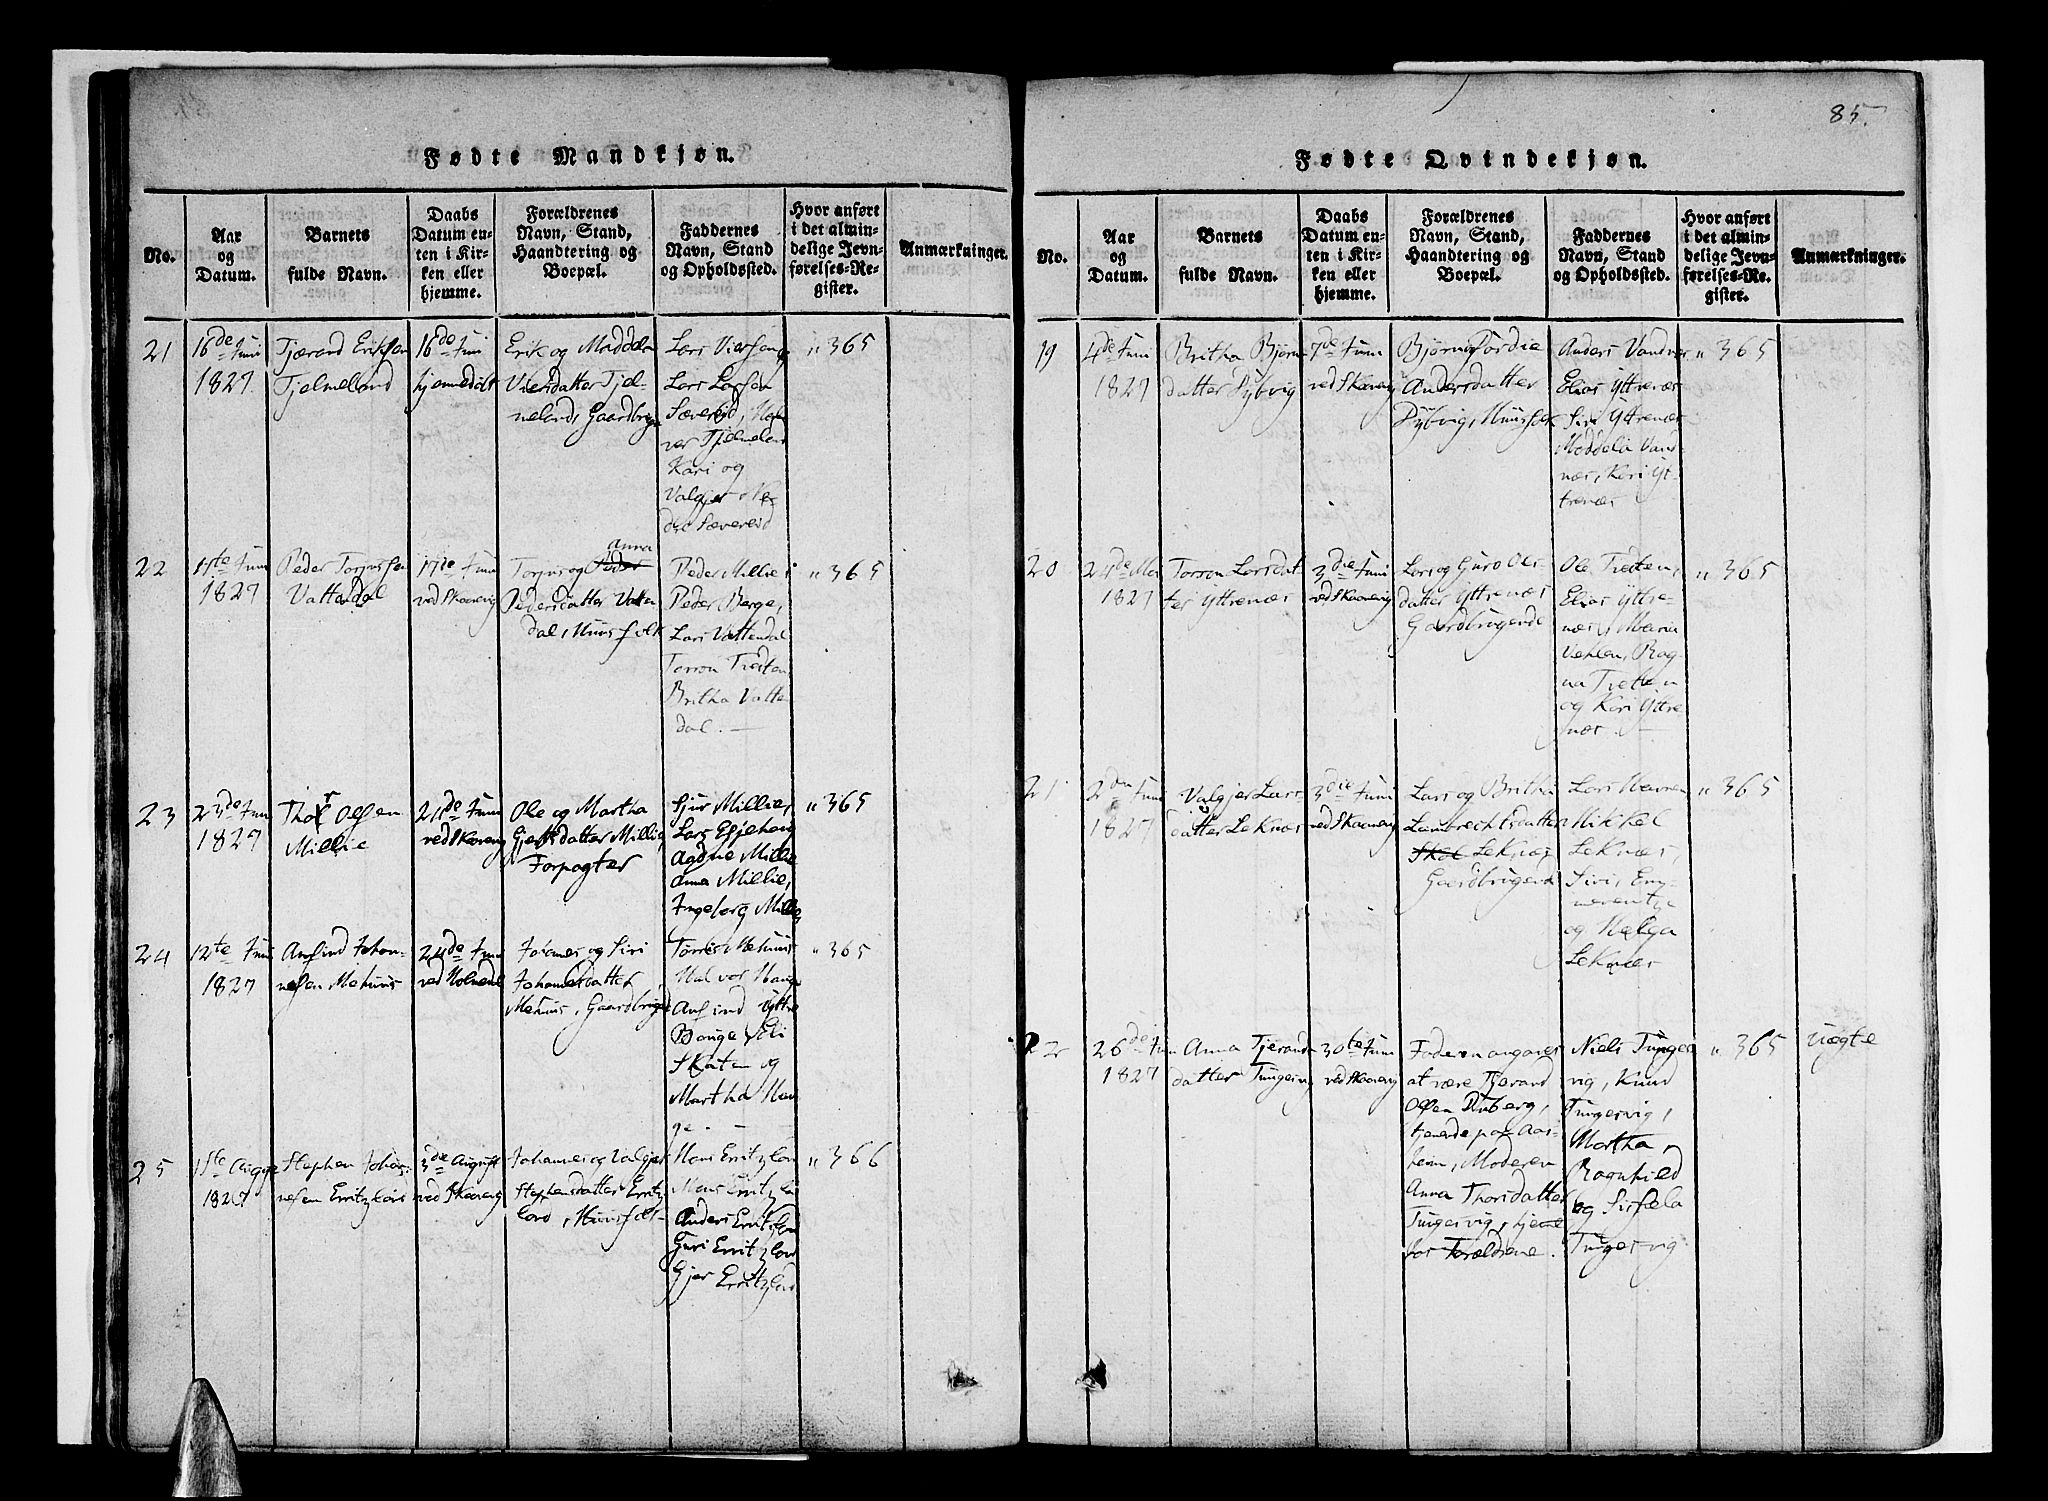 85.
Fødte Mandkjøn.
No.
Aar og Datum.
Barnets fulde Navn.
Daabs Datum enten i Kirken eller hjemme.
Forældrenes Navn, Stand, Haandtering og Boepæl.
Faddernes Navn, Stand og Opholdssted.
Hvor anført i det almindelige Jevnførelses-Register.
Anmærkninger.
21
16de Juni
1827.
Tjærand Eriksen
Tjelmeland
16de Juni
hjemmedøbt
Erik og Maddela
Viersdatter Tjel-
melands Gaardbrug
Lars
Lars Larsen
Sævereid,
Tjelmeland
Kari og
Valgjer Ne-
dre Sævereid
" 365
22
Juni
1827
Peder Torjussen
Vattedal
17de Juni
ved Skaanevig
Torjus og Peder
Anna
Pedersdatter Vatte
dal, Huusfolk
Peder Millie,
Peder Berge,
Lars Vattendal
Torron Tveiten
Britha Vatte
dal. —
" 365
23
23de Juni
1827
Thor Olsen
Millie
24de Juni
ved Skaanevig
Ole og Martha
Millie,
Forpagter
Gjur Millie,
Lars
Aadne Millie
Anna Millie,
Ingeborg Millie
" 365
24
12te Juni
1827
Anfind Johan-
nesen Mehuus
24de Juni
ved Holmedal
Johannes og Siri
Johannesdatter
Mehuus, Gaardbrugende
Mehuus
Halvor Hauge
Anfind Yttre
Bauge,
Skaten og
Martha Hau
ge. —
" 365
25
1ste Augu
1827
Stephen Johan-
nesen Erritzland
3die August
ved Skaanevig
Johannes og Valgjer
Stephensdatter Erritz
land, Huusfolk
Hans Erritzland
Mons Erritzland
Anders Erritzland
Guri Erritzland
Gjer Erritzland
" 366
Fødte Qvindekjøn.
No.
Aar og Datum.
Barnets fulde Navn.
Daabs Datum enten i Kirken eller hjemme.
Forældrenes Navn, Stand, Haandtering og Boepæl.
Faddernes Navn, Stand og Opholdssted.
Hvor anført i det almindelige Jevnførelses-Register.
Anmærkninger.
19
4de Juni
1827
Britha Bjørns
datter Dybvig
7de Juni
ved Skaanevig
Bjørn
Andersdatter
Dybvig, Huusfolk
Anders Vandnæs
Elias Yttrenæs
Siri Yttrenæs
Maddela Vand-
næs, Kari Yt-
trenæs
" 365
20
24de Mai
1827
Torron Larsdat
ter Yttrenæs
3die Juni
ved Skaanevig
Lars og Guro Ols-
datter Yttrenæs
Gaardbrugende
Ole Tveiten,
Elias Yttre-
næs,
Rag-
na Tveiten
og Kari Yttre
næs. —
" 365
21
2den Juni
1827
Valgjer Lars-
datter Leknæs
3die Juni
ved Skaanevig
Lars og Britha
Lambrechtsdatter
Leknæs
Gaardbrugende
Lars
Mikkel
Leknæs,
Siri,
og Helga
Leknæs
" 365
22
26de Juni
1827
Anna Tjerands
datter Tungesvig
30te Juni
ved Skaanevig
Faderen angaves
at være Tjerand
Olsen
tjenende paa Aas-
heim, Moderen
Anna Thorsdatter
Tungesvig, hjeme
hos Forældrene.
Niels Tunges
vig, Knud
Tungesvig,
Martha,
Ragnhild
og
Tungesvig
" 365
Uægte